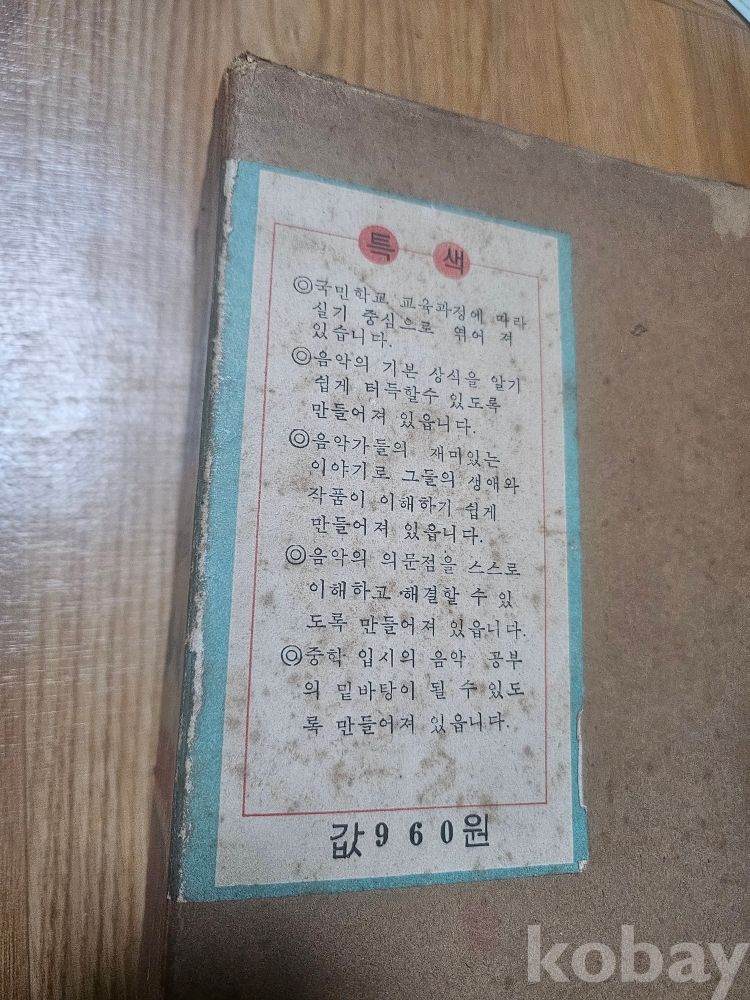 특 색
◎국민학교 교육과정에 따라
실기 중심으로 엮어 져
있습니다.
◎음악의 기본 상식을 알기
쉽게 터득할수 있도록
만들어져 있읍니다.
◎음악가들의 재미있는
이야기로 그들의 생애와
작품이 이해하기 쉽게
만들어져 있읍니다.
◎음악의 의문점을 스스로
이해하고 해결할 수 있
도록 만들어져 있읍니다.
◎중학 입시의 음악 공부
의 밑바탕이 될 수 있도
록 만들어져 있읍니다.
값 9 6 0 원
kobay